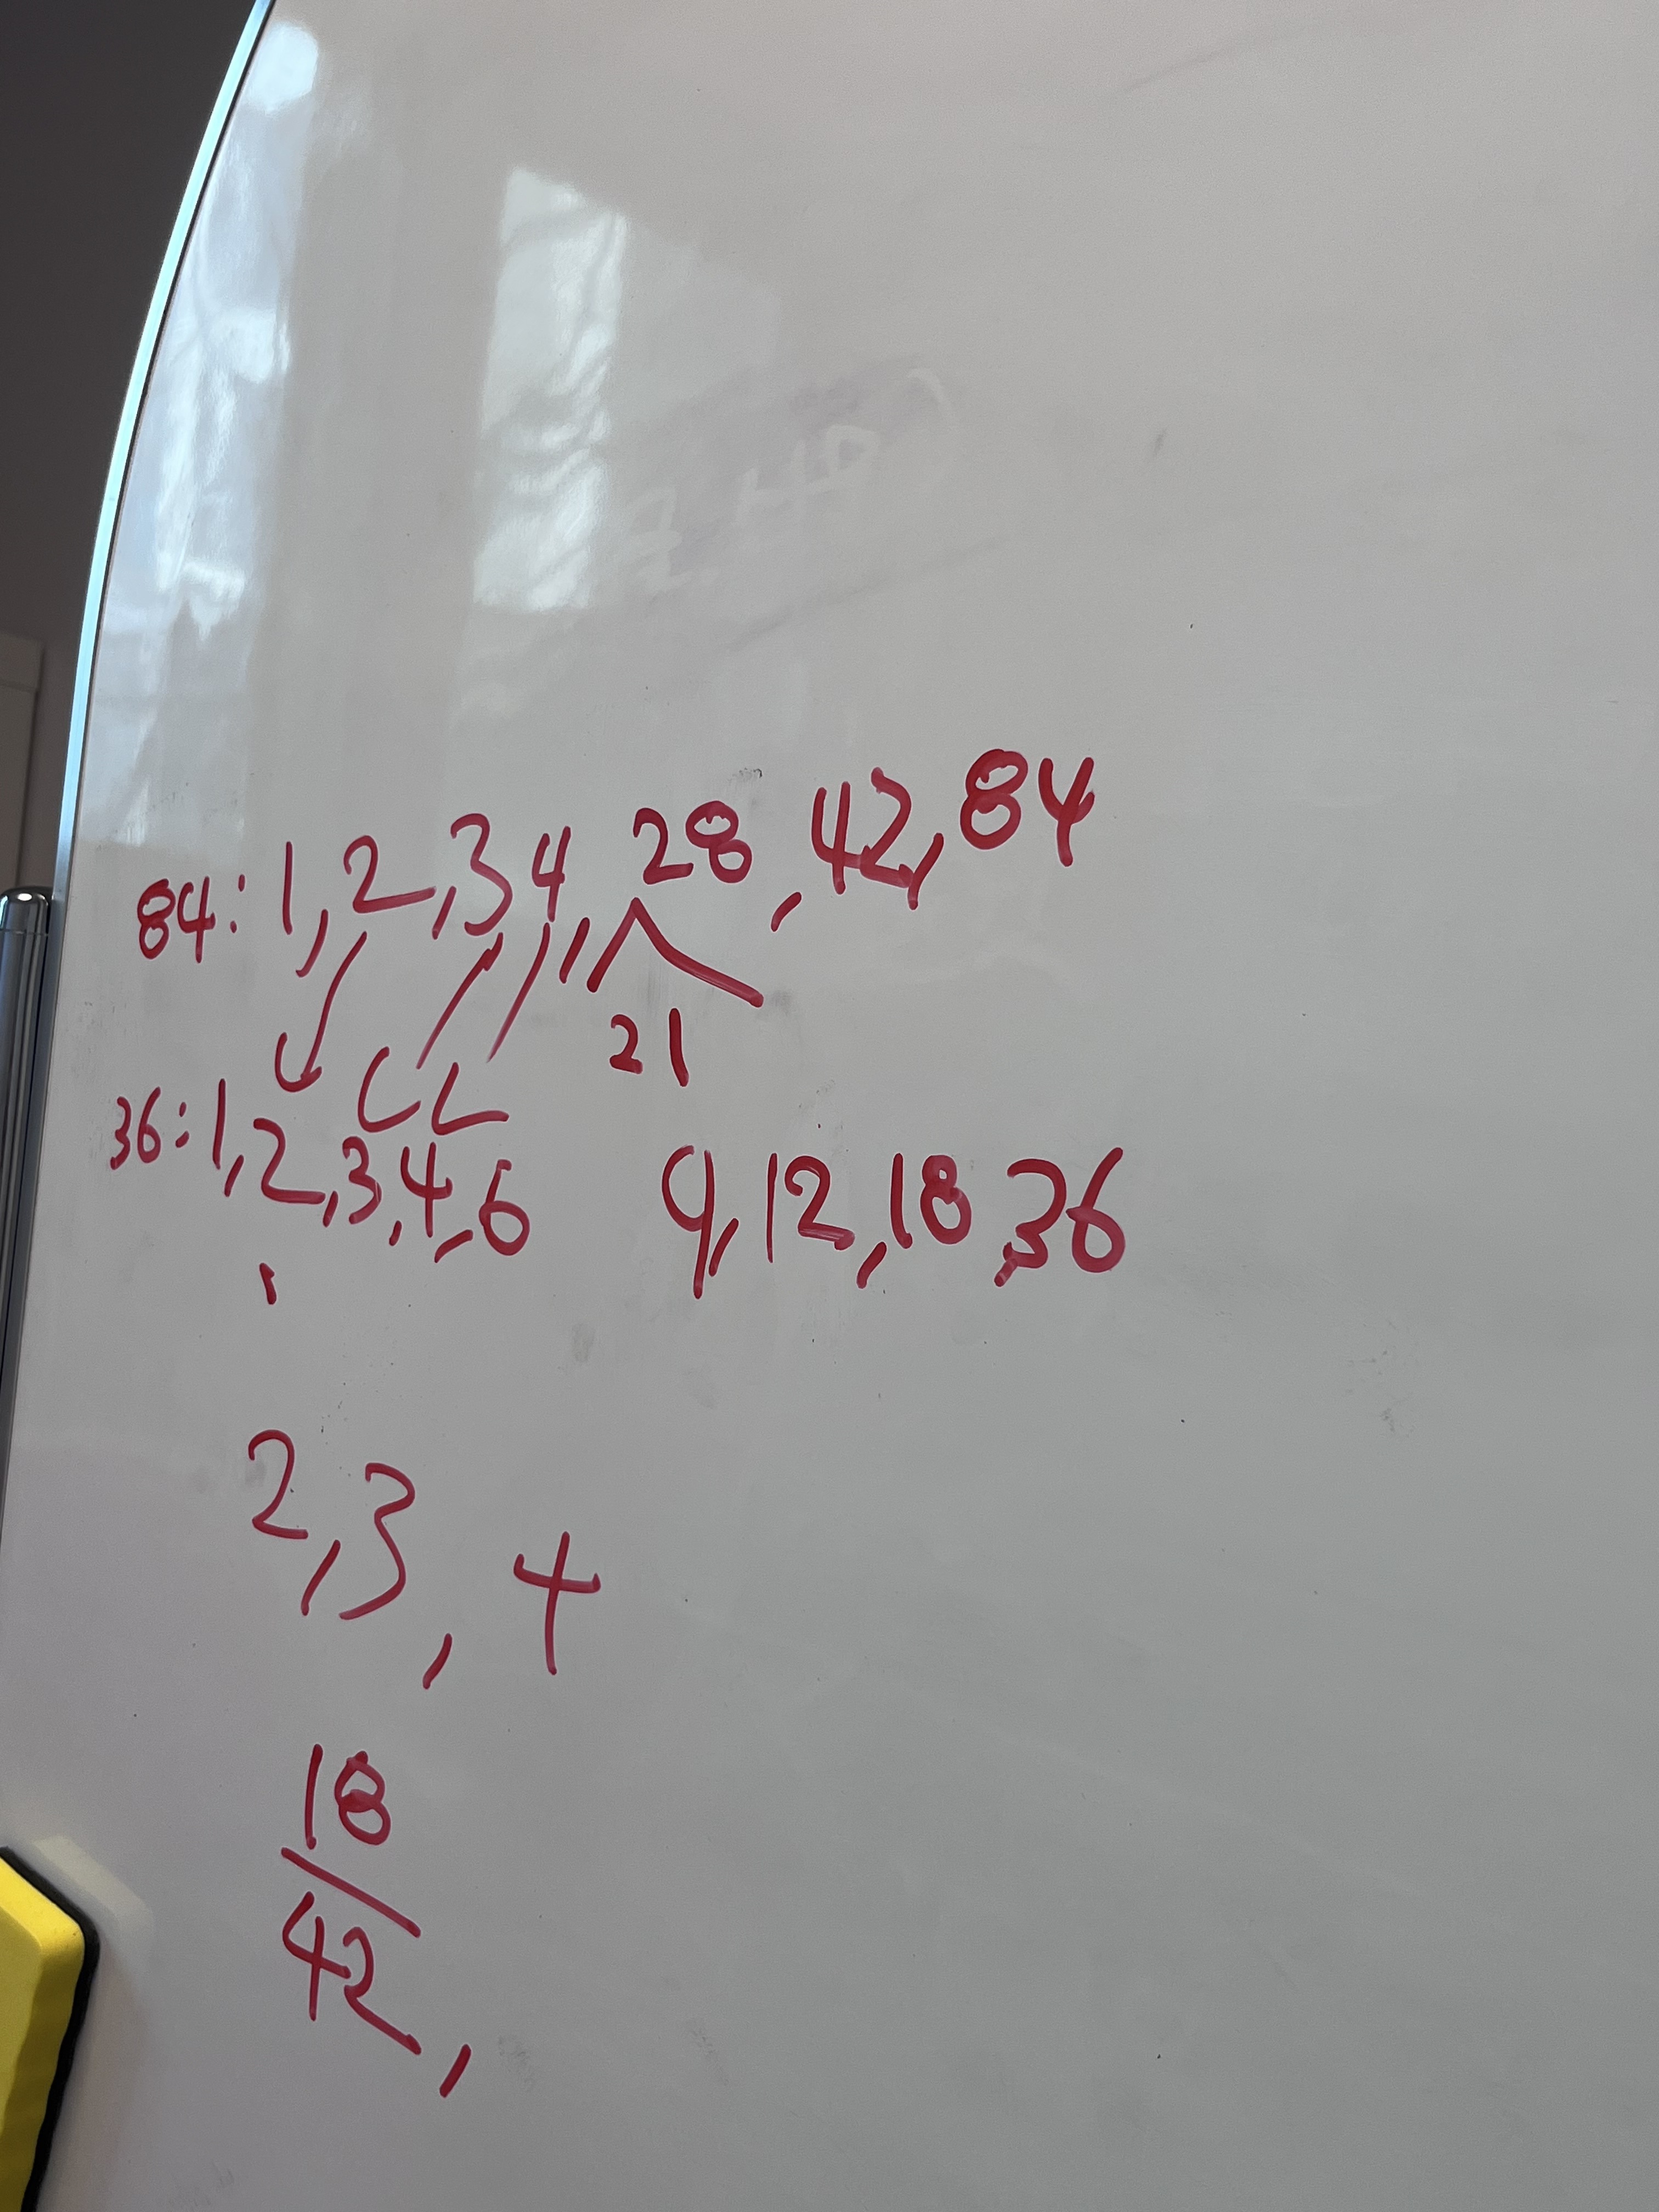 84: 1, 2, 3 4, 28, 42, 84
21
36: 1, 2, 3, 4, 6 9, 12, 18, 36
2, 3, 4
18
42,